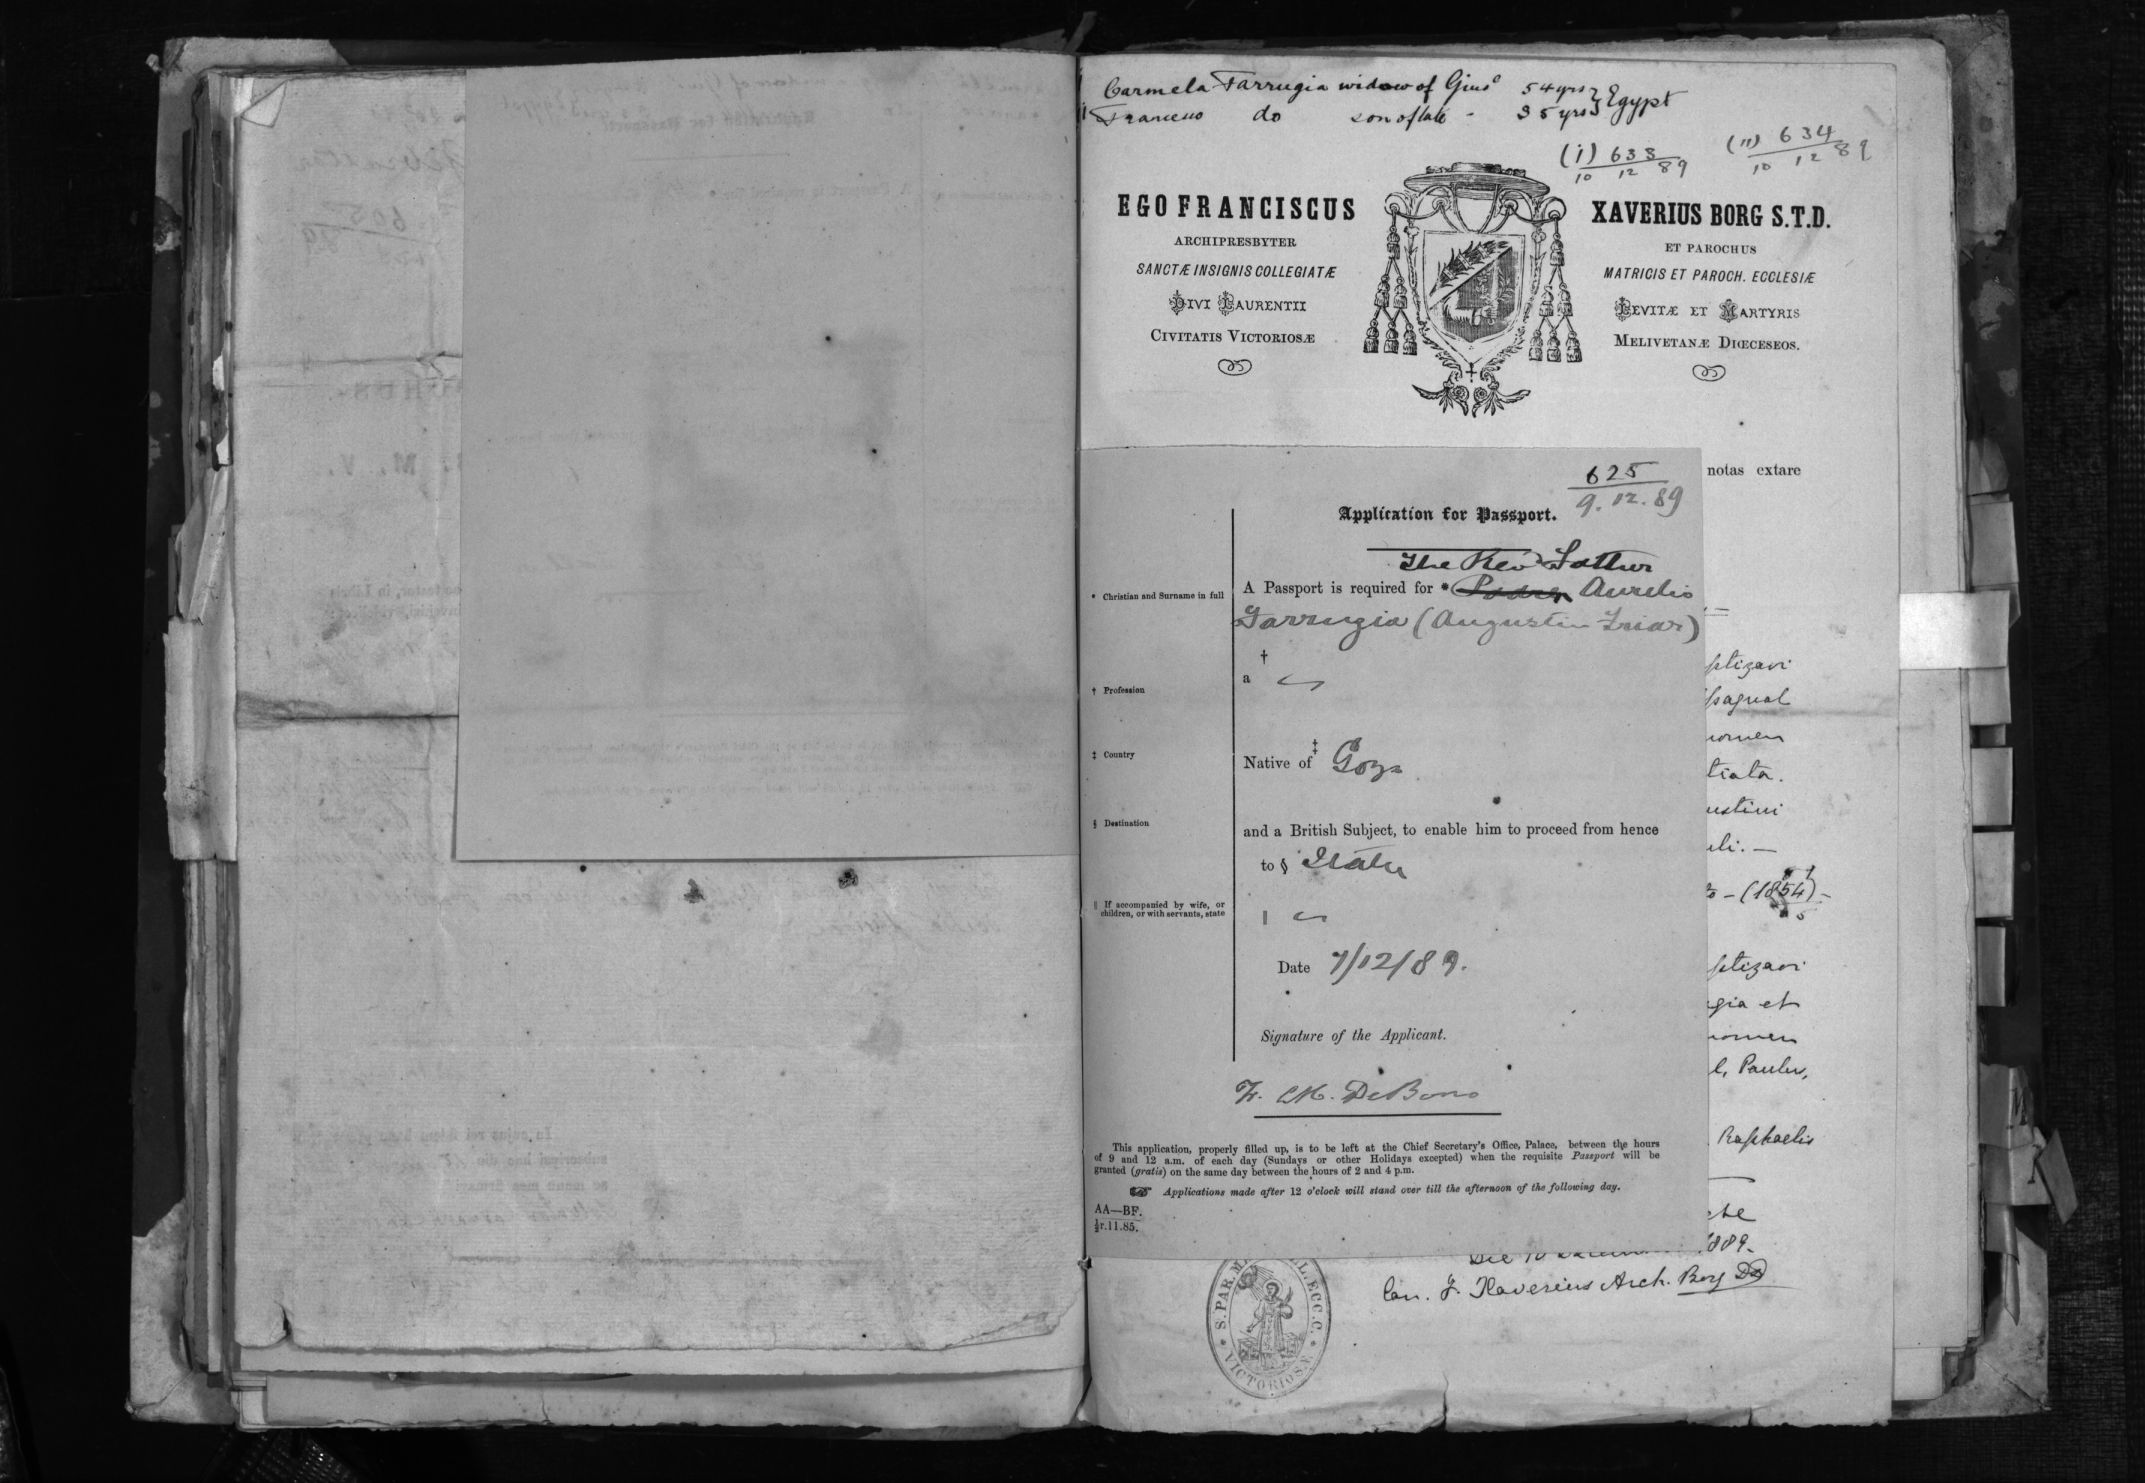 Carmela Farrugia widow of Gius^e 54 yrs } Egypt
Francesco do son of late - 35 yrs
(i) 633 (ii) 634
10 12 89 10 12 89
EGO FRANCISCUS XAVERIUS BORG S.T.D.
ARCHIPRESBYTER ET PAROCHUS
SANCTÆ INSIGNIS COLLEGIATÆ MATRICIS ET PAROCH. ECCLESIÆ
DIVI LAURENTII LEVITÆ ET MARTYRIS
CIVITATIS VICTORIOSÆ MELIVETANÆ DIŒCESEOS.
notas extare
625
9.12.89
Application for Passport.
The Rev Father
* Christian and Surname in full
A Passport is required for * Padre Aurelio
Farrugia (Augustin Friar)
† Profession
†
a
‡ Country
Native of ‡ Gozo
§ Destination
and a British Subject, to enable him to proceed from hence
to § Italy
‖ If accompanied by wife, or
children, or with servants, state
‖
Date 7/12/89.
Signature of the Applicant.
F. M. De Bono
This application, properly filled up, is to be left at the Chief Secretary's Office, Palace, between the hours
of 9 and 12 a.m. of each day (Sundays or other Holidays excepted) when the requisite Passport will be
granted (gratis) on the same day between the hours of 2 and 4 p.m.
☞ Applications made after 12 o'clock will stand over till the afternoon of the following day.
AA—BF.
½r.11.85.
ptizavi
nomen
tiata.
ustini
(1854)
ptizavi
gia et
nomen
Paulus,
Raphaelis
1889.
Can. F. Xaverius Arch. Borg
S. PAR. M L. ECC. C. VICTORIOSÆ